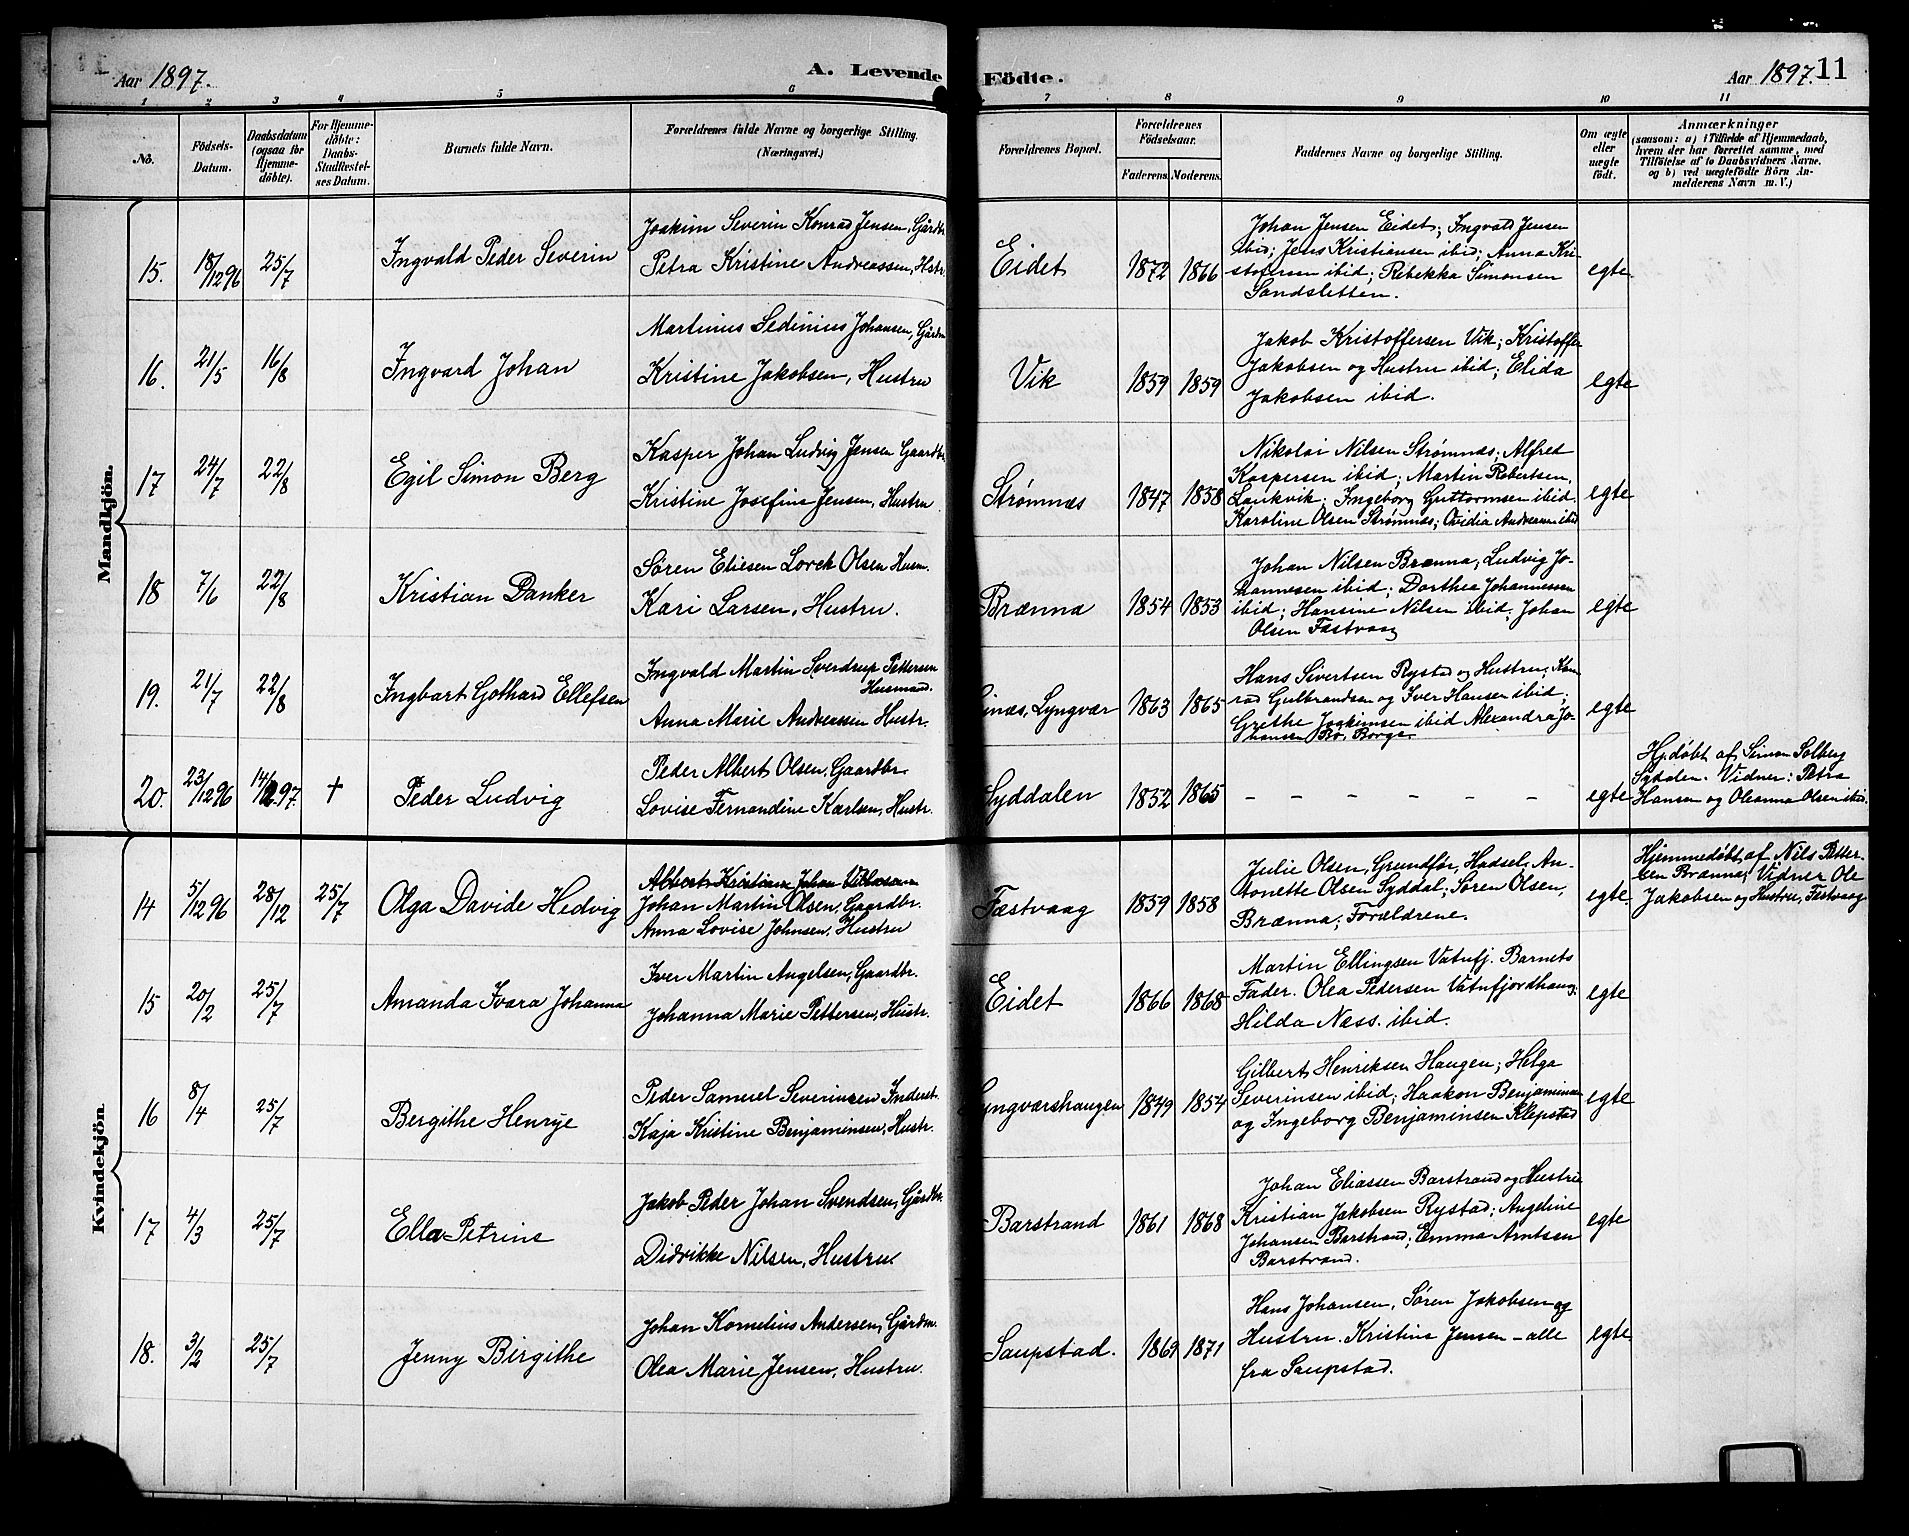 Aar 1897.
A. Levende
Födte.
Aar 1897.
11
1 2 3 4 5 6 7 8 9 10 11
No.
Födsels-
Datum.
Daabsdatum
(ogsaa for
Hjemme-
döbte).
For Hjemme-
döbte:
Daabs-
Stadfæstel-
ses Datum.
Barnets fulde Navn.
Forældrenes fulde Navne og borgerlige Stilling.
(Næringsvei.)
Forældrenes Bopæl.
Forældrenes
Födselsaar.
Faderens. Moderens.
Faddernes Navne og borgerlige Stilling.
Om ægte
eller
uægte
födt.
Anmærkninger
(saasom: a) i Tilfælde af Hjemmedaab,
hvem der har forrettet samme, med
Tilföielse af to Daabsvidners Navne.
og b) ved uægtefödte Börn An-
melderens Navn m. V.)
Mandkjön.
15. 18/12 96 25/7
Ingvald Peder Severin
Joakim Severin Konrad Jensen, Gårdbr.
Petra Kristine Andreassen, Hstr.
Eidet 1872 1866
Johan Jensen Eidet; Ingvald Jensen
ibid; Jens Kristiansen ibid; Anna Kri-
stofersen ibid; Rebekka Simonsen
Sandsletten.
egte
16. 21/5 16/8
Ingvard Johan
Martinus Sedinius Johansen, Gårdm
Kristine Jakobsen, Hustru
Vik 1859 1859
Jakob Kristoffersen Vik; Kristoffer
Jakobsen og Hustru ibid; Elida
Jakobsen ibid.
egte
17 24/7 22/8
Egil Simon Berg
Kasper Johan Ludvig Jensen Gaardbr
Kristine Josefine Jensen, Hustru
Strømnæs 1847 1858
Nikolai Nilsen Strømnæs; Alfred
Kaspersen ibid; Martin Robertsen,
Laukvik; Ingeborg Guttormsen ibid.
Karoline Olsen Strømnæs; Ovidia Andreasen ibid
egte
18 7/6 22/8
Kristian Danker
Søren Eliesen Lorck Olsen Husm.
Kari Larsen, Hustru.
Brænna 1854 1853
Johan Nilsen Brænna, Ludvig Jo-
hannesen ibid; Dorthea Johannessen
ibid; Hansine Nilsen ibid; Johan
Olsen Fæstvaag
egte
19. 21/7 22/8
Ingbart Gothard Ellefsen
Ingvald Martin Sverdrup Pettersen
Husmand.
Anna Marie Andreassen Hustr.
Lyngvær 1863 1865
Hans Sivertsen Rystad og Hustru, Kon-
rad Gulbrandsen og Iver Hansen ibid;
Grethe Joakimsen ibid Alexandra Jo-
hansen Bø, Borge.
egte
20. 23/12 96 97 †
Peder Ludvig
Peder Albert Olsen, Gaardbr.
Lovise Fernandine Karlsen, Hustr.
Syddalen 1852 1865
– – – – – –
egte
Hj.døbt af Simon Solberg
Sydalen. Vidner: Petra
Hansen og Oleanna Olsen ibid.
Kvindekjön.
14 5/12 96 28/12 25/7
Olga Davide Hedvig
Johan Martin Olsen, Gaardbr.
Anna Lovise Johnsen, Hustru
Fæstvaag 1859 1858
Julie Olsen, Grundför, Hadsel, An-
tonette Olsen Syddal; Søren Olsen,
Brænna; Forældrene.
egte.
Hjemmedøbt af Nils Petter-
sen Brænna; Vidner Ole
Jakobsen og Hustru, Fæstvaag
15 20/2 25/7
Amanda Ivara Johanna
Iver Martin Angelsen, Gaardbr.
Johanna Marie Pettersen, Hustr.
Eidet 1866 1868
Martin Ellingsen Vatnfj. Barnets
Fader. Olea Pedersen Vatnfjordhaug;
Hilda Næss. ibid.
egte
16 8/4 25/7
Bergithe Henrye
Peder Samuel Severinsen Inderst.
Kaja Kristine Benjaminsen, Hustr.
Lyngværshaugen 1849 1854
Gilbert Henriksen Haugen; Helga
Severinsen ibid; Haakon Benjaminsen
og Ingeborg Benjaminsen Klepstad
egte
17 4/3 25/7
Ella Petrine
Jakob Peder Johan Svendsen, Gårdbr.
Didrikke Nilsen, Hustru.
Barstrand 1861 1868
Johan Eliassen Barstrand og Hustru
Kristian Jakobsen Rystad; Angeline
Johansen Barstrand; Emma Arntsen
Barstrand.
egte
18. 3/2 25/7
Jenny Birgithe
Johan Kornelius Andersen, Gårdm.
Olea Marie Jensen, Hustru.
Saupstad. 1869 1871
Hans Johansen, Søren Jakobsen og
Hustru. Kristine Jensen – alle
fra Saupstad.
egte